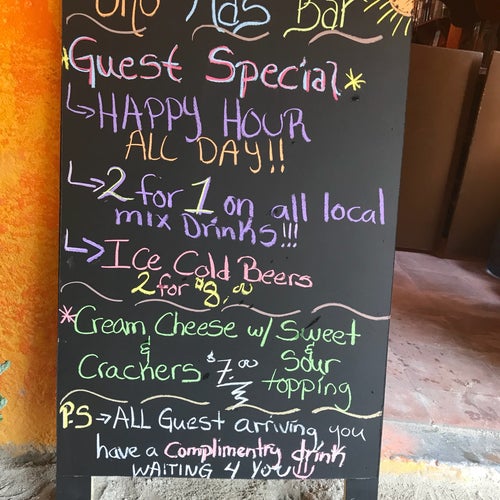 Uno Mas Bar
*Guest Special*
HAPPY HOUR
ALL DAY!!
2 for 1 on all local
mix Drinks!!!
Ice Cold Beers
2 for $8.00
*Cream Cheese w/ Sweet
& &
Crackers $7.00 Sour
topping
P.S → ALL Guest arriving you
have a Complimentry drink
WAITING 4 YOU